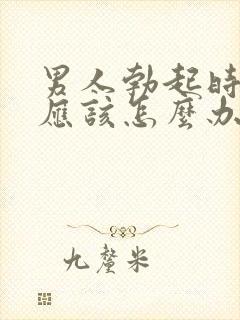 男人勃起時
應該怎麼办
九釐米